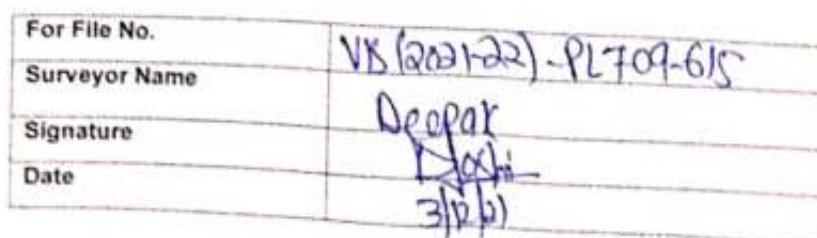 For File No. VIS (2021-22)-PL709-615
Surveyor Name Deepak
Signature Joshi
Date 3/12/21